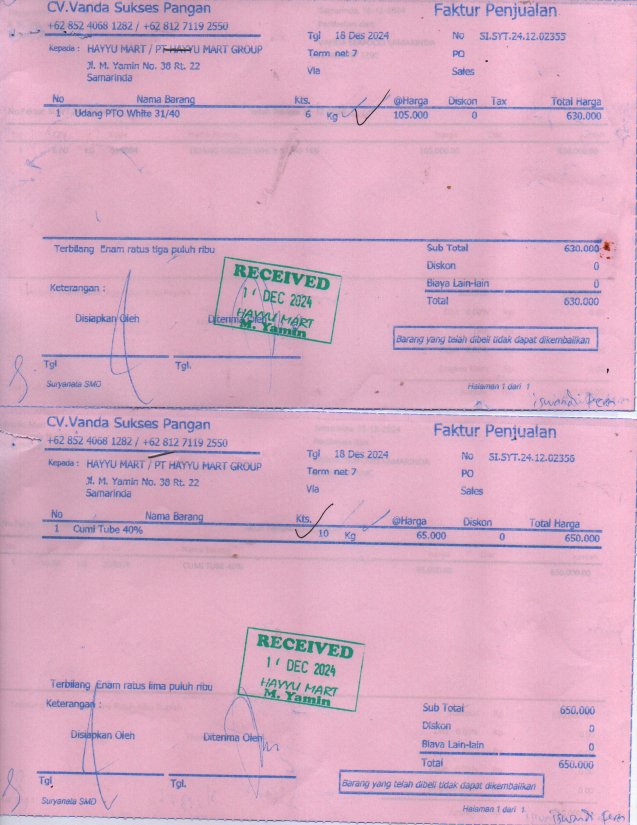 CV.Vanda Sukses Pangan
Faktur Penjualan
+62 852 4068 1282 / +62 812 7119 2550
Tgl 18 Des 2024
No SI.SYT.24.12.02355
Kepada : HAYYU MART / PT HAYYU MART GROUP
Term net 7
PO
Jl. M. Yamin No. 38 Rt. 22
Via
Sales
Samarinda
No Nama Barang Kts. @Harga Diskon Tax Total Harga
1 Udang PTO White 31/40 6 Kg 105.000 0 630.000
Terbilang Enam ratus tiga puluh ribu
Sub Total 630.000
Diskon 0
Keterangan :
Biaya Lain-lain 0
Total 630.000
RECEIVED
DEC 2024
HAYYU MART
M. Yamin
Disiapkan Oleh
Diterima Oleh
Barang yang telah dibeli tidak dapat dikembalikan
Tgl
Tgl.
Suryanata SMD
Halaman 1 dari 1
CV.Vanda Sukses Pangan
Faktur Penjualan
+62 852 4068 1282 / +62 812 7119 2550
Tgl 18 Des 2024
No SI.SYT.24.12.02356
Kepada : HAYYU MART / PT HAYYU MART GROUP
Term net 7
PO
Jl. M. Yamin No. 38 Rt. 22
Via
Sales
Samarinda
No Nama Barang Kts. @Harga Diskon Total Harga
1 Cumi Tube 40% 10 Kg 65.000 0 650.000
RECEIVED
DEC 2024
HAYYU MART
M. Yamin
Terbilang Enam ratus lima puluh ribu
Keterangan :
Sub Total 650.000
Diskon 0
Disiapkan Oleh
Diterima Oleh
Biaya Lain-lain 0
Total 650.000
Tgl
Tgl.
Barang yang telah dibeli tidak dapat dikembalikan
Suryanata SMD
Halaman 1 dari 1